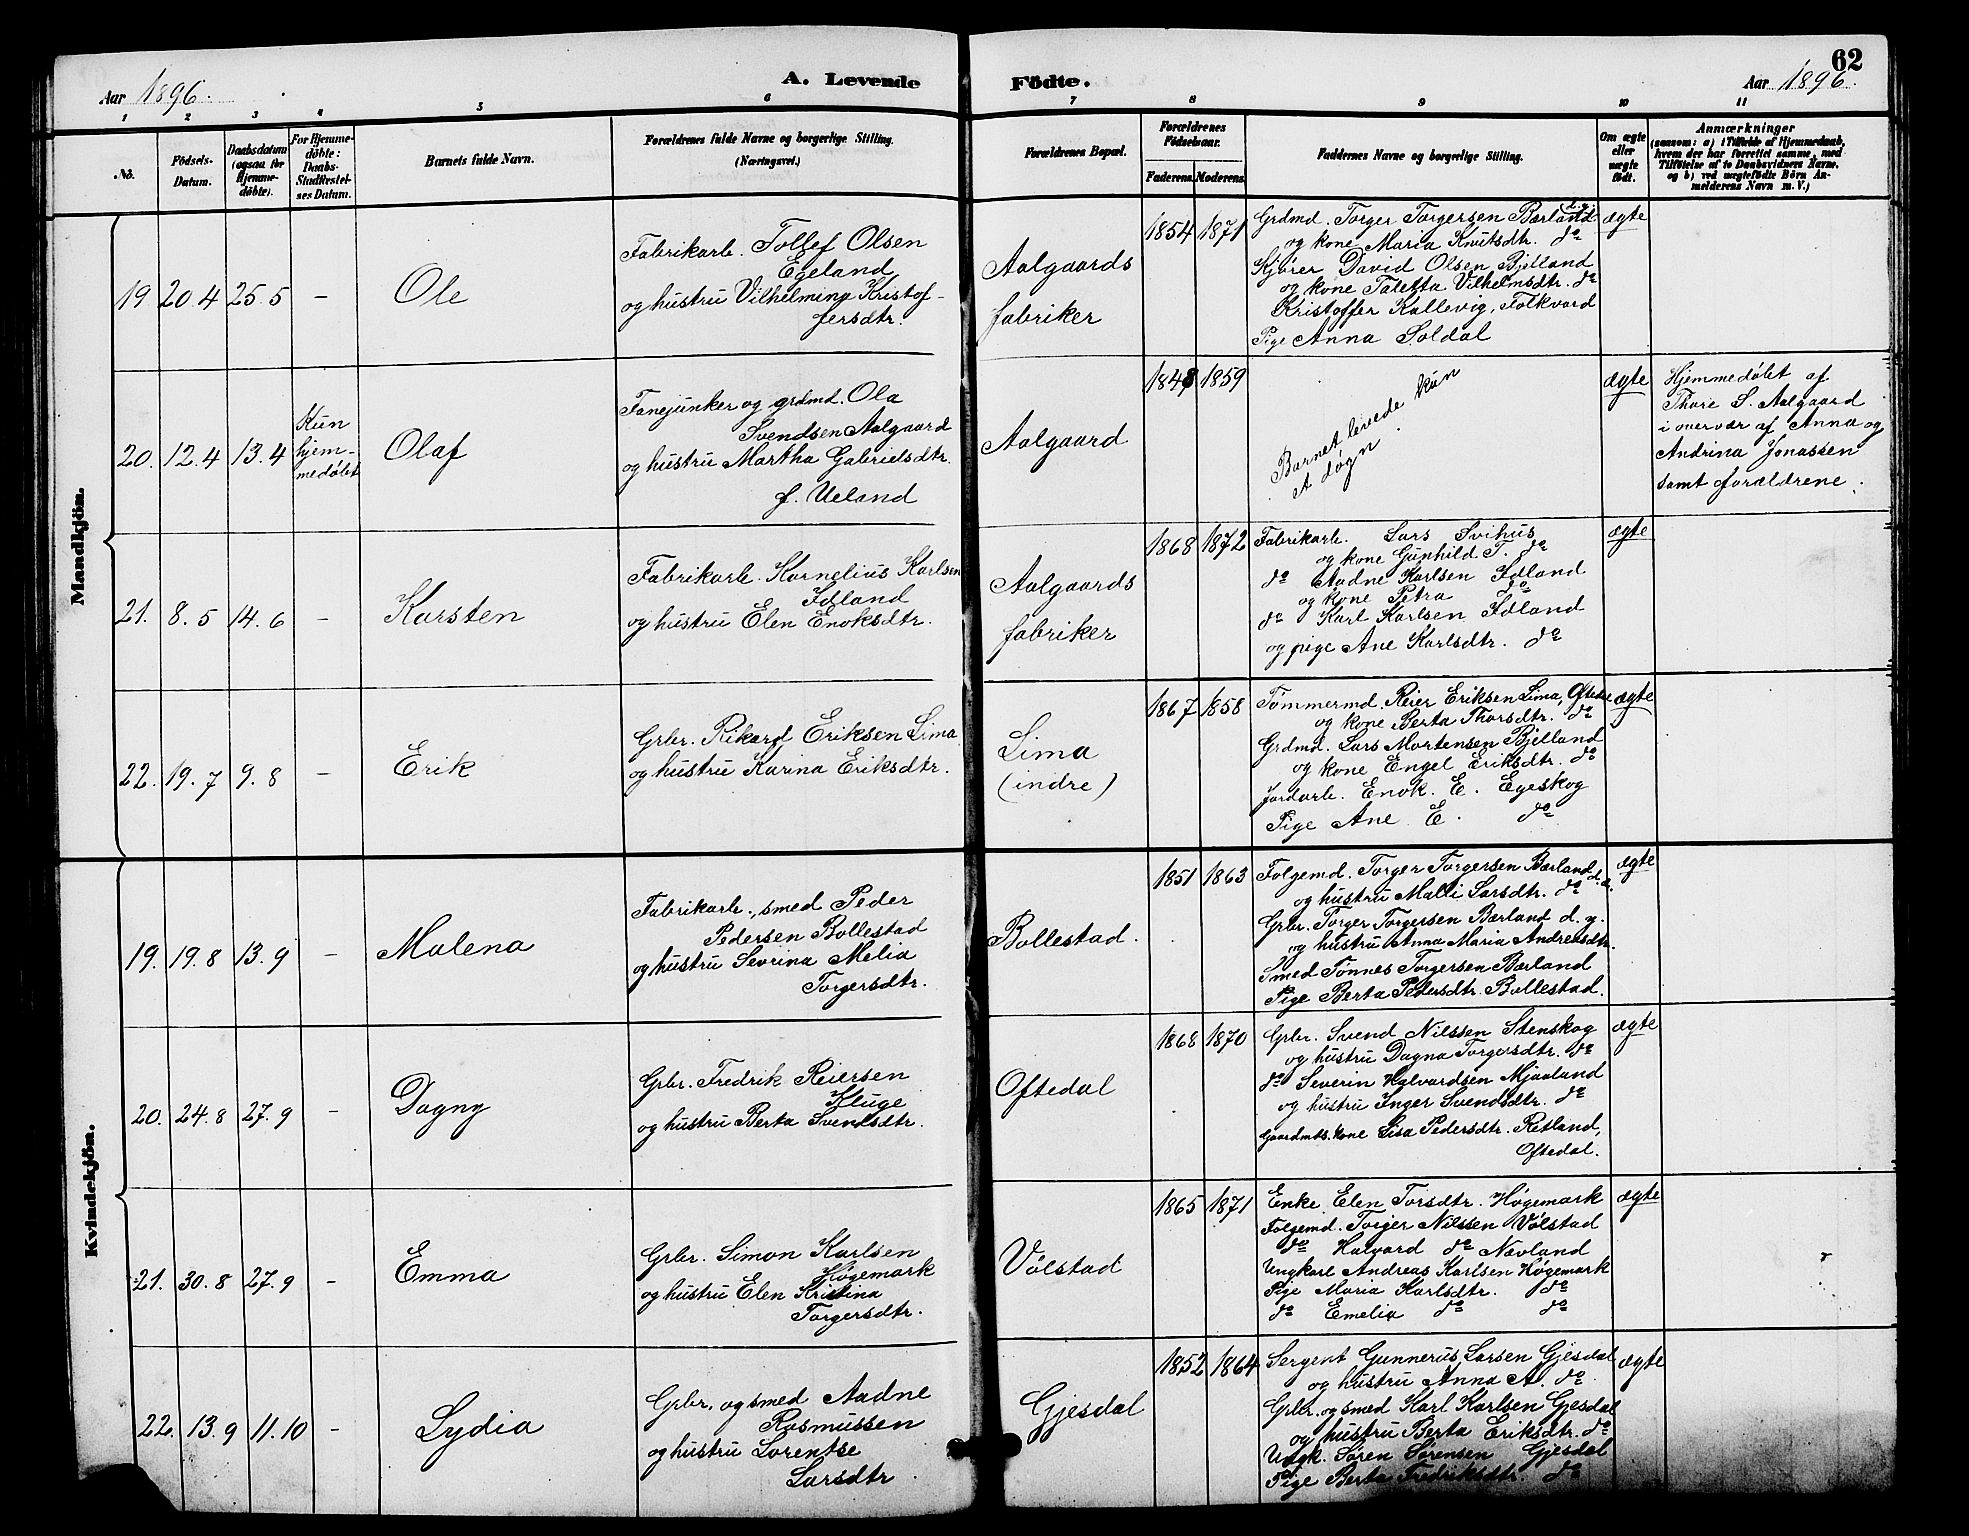 62
Aar 1896.
A. Levende Födte.
Aar 1896.
1 2 3 4 5 6 7 8 9 10 11
No.
Födsels-Datum.
Daabsdatum (ogsaa for Hjemme-döbte).
For Hjemme-döbte: Daabs Stadfæstel-ses Datum.
Barnets fulde Navn.
Forældrenes fulde Navne og borgerlige Stilling. (Næringsvei.)
Forældrenes Bopæl.
Forældrenes Födselsaar.
Faderens. Moderens.
Faddernes Navne og borgerlige Stilling.
Om ægte eller uægte födt.
Anmærkninger
(saasom: a) i Tilfælde af Hjemmedaab, hvem der har forrettet samme, med Tilföielse af to Daabsvidners Navne, og b) ved uægtefödte Börn An-melderens Navn m. V.)
Mandkjön.
19 20.4 25.5 –
Ole
Fabrikarb. Tollef Olsen
Egeland
og hustru Vilhelmina Kristof-
fersdtr.
Aalgaards
fabriker
1854 1871
Grdmd. Torger Torgersen Bærland d.y.
og kone Maria Knutsdtr. do
Kjører David Olsen Bjelland
og kone Taletta Vilhelmsdtr. do
Kristoffer Kallevig, Folkvord
Pige Anna Soldal
ægte
20. 12.4 13.4
Kun
hjem-
medøbt
Olaf
Fanejunker og grdmd. Ola
Svendsen Aalgaard
og hustru Martha Gabrielsdtr.
f. Ueland
Aalgaard
1848 1859
Barnet levede kun
et døgn.
ægte
Hjemmedøbt af
Thore S. Aalgaard
i overvær af Anna og
Andrina Jonassen
samt forældrene.
21. 8.5 14.6 –
Karsten
Fabrikarb. Kornelius Karlsen
Idland
og hustru Elen Enoksdtr.
Aalgaards
fabriker
1868 1872
Fabrikarb. Lars Svihus
og kone Gunhild T. do
do Aadne Karlsen Idland
og kone Petra do
do Karl Karlsen Idland
og pige Ane Karlsdtr. do
ægte
22. 19.7 9.8 –
Erik
Grbr. Rikard Eriksen Lima
og hustru Karina Eriksdtr.
Lima
(indre)
1867 1858
Tømmermd. Reier Eriksen Lima, Oftedal
og kone Berta Thorsdtr. do
Grdmd. Lars Mortensen Bjelland
og kone Engel Eriksdtr. do
Jordarb. Enok. E. Egeskog
Pige Ane E. do
ægte
Kvindekjön.
19. 19.8 13.9 –
Malena
Fabrikarb., smed Peder
Pedersen Bollestad
og hustru Sevrina Melia
Torgersdtr.
Bollestad.
1851 1863
Folgemd. Torger Torgersen Bærland d.æ.
og hustru Malli Larsdtr. do
Grbr. Torger Torgersen Bærland d.y.
og hustru Anna Maria Andreasdtr.
Smed Tønnes Torgersen Bærland
Pige Berta Pedersdtr. Bollestad.
ægte
20. 24.8 27.9 –
Dagny
Grbr. Fredrik Reiersen
Kluge
og hustru Berta Svendsdtr.
Oftedal
1868 1870
Grbr. Svend Nilssen Stenskog
og hustru Dagna Torgersdtr. do
do Severin Halvardsen Mjaaland
og hustru Inger Svendsdtr. do
Gaardmds. kone Lisa Pedersdtr. Retland,
Oftedal.
ægte
21. 30.8 27.9 –
Emma
Grbr. Simon Karlsen
Høgemark
og hustru Elen Kristina
Torgersdtr.
Vølstad
1865 1871
Enke Elen Torsdtr. Høgemark
Folgemd. Torger Nilssen Vølstad
do Halvard do Nævland
Ungkarl Andreas Karlsen Høgemark
Pige Maria Karlsdtr. do
do Emelia do do
ægte
22. 13.9 11.10 –
Lydia
Grbr. og smed Aadne
Rasmussen
og hustru Lorentse
Larsdtr
Gjesdal
1852 1864
Sergent Gunnerus Larsen Gjesdal
og hustru Anna A. do
Grbr. og smed Karl Karlsen Gjesdal
og hustru Berta Eriksdtr. do
Ungk. Søren Sørensen Gjesdal
Pige Berta Fredriksdtr. do
ægte